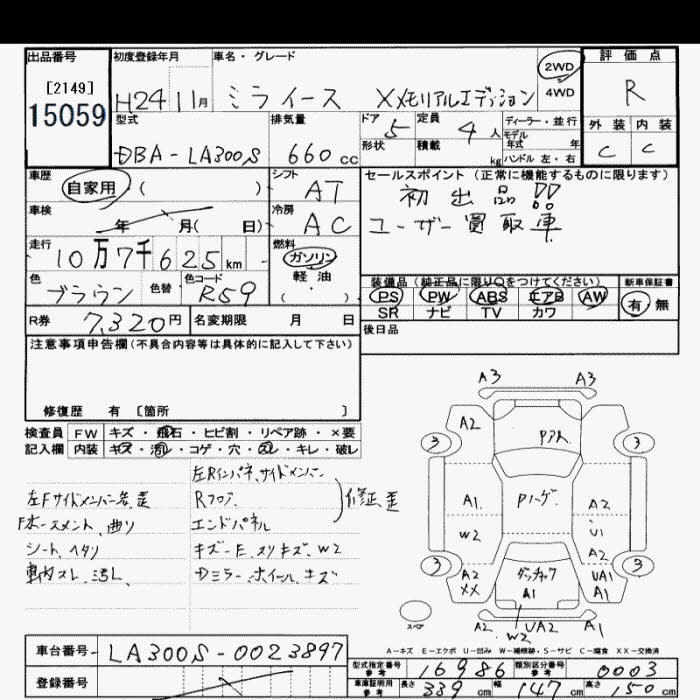 出品番号 初度登録年月 車名・グレード 2WD 4WD 評価点
[2149]
15059 H24 11月 ミライース Xメモリアルエディション R
型式 排気量 ドア 5 定員 4人 ディーラー・並行 外装 内装
DBA-LA300S 660cc 形状 積載 kg モデル年式 年 C C
ハンドル 左・右
車歴 シフト セールスポイント (正常に機能するものに限ります)
自家用 ( ) AT 初出品!!
車検 冷房 ユーザー買取車
年 月( 日) AC
走行 燃料
10万7千625km ガソリン
色 色替 色コード 軽・油
ブラウン R59 ( )
装備品 (純正品に限り○をつけてください) 新車保証書
PS PW ABS エアB AW 有 無
SR ナビ TV カワ
R券 7,320円 名変期限 月 日 後日品
注意事項申告欄(不具合内容等は具体的に記入して下さい)
修復歴 有 [箇所 ]
検査員 FW キズ・飛石・ヒビ割・リペア跡・×要
記入欄 内装 キズ・汚レ・コゲ・穴・スレ・キレ・破レ
左Rインパネ、サイドメンバー
左Fサイドメンバー Rフロア 修正歪
Fホースメント、曲り エンドパネル
シート、ヘタリ キズ-E、スリキズ、W2
車内スレ、汚レ、 Dミラー、ホイール、キズ
A3 A3
A2 Pアト
3 3
A1 Pハーゲ A2
W2 U1
A2
3 3
A2 ダッチャク UA1
XX A1 A1
スペア A2 W2 UA2 A1
A-キズ E-エクボ U-凹み W-補修跡・S-サビ C-腐食 XX-交換済
車台番号 LA300S-0023897
登録番号
型式指定番号 参考 16986 類別区分番号 参考 0003
車庫証明用 参考 長さ 339cm 幅 147cm 高さ 150cm